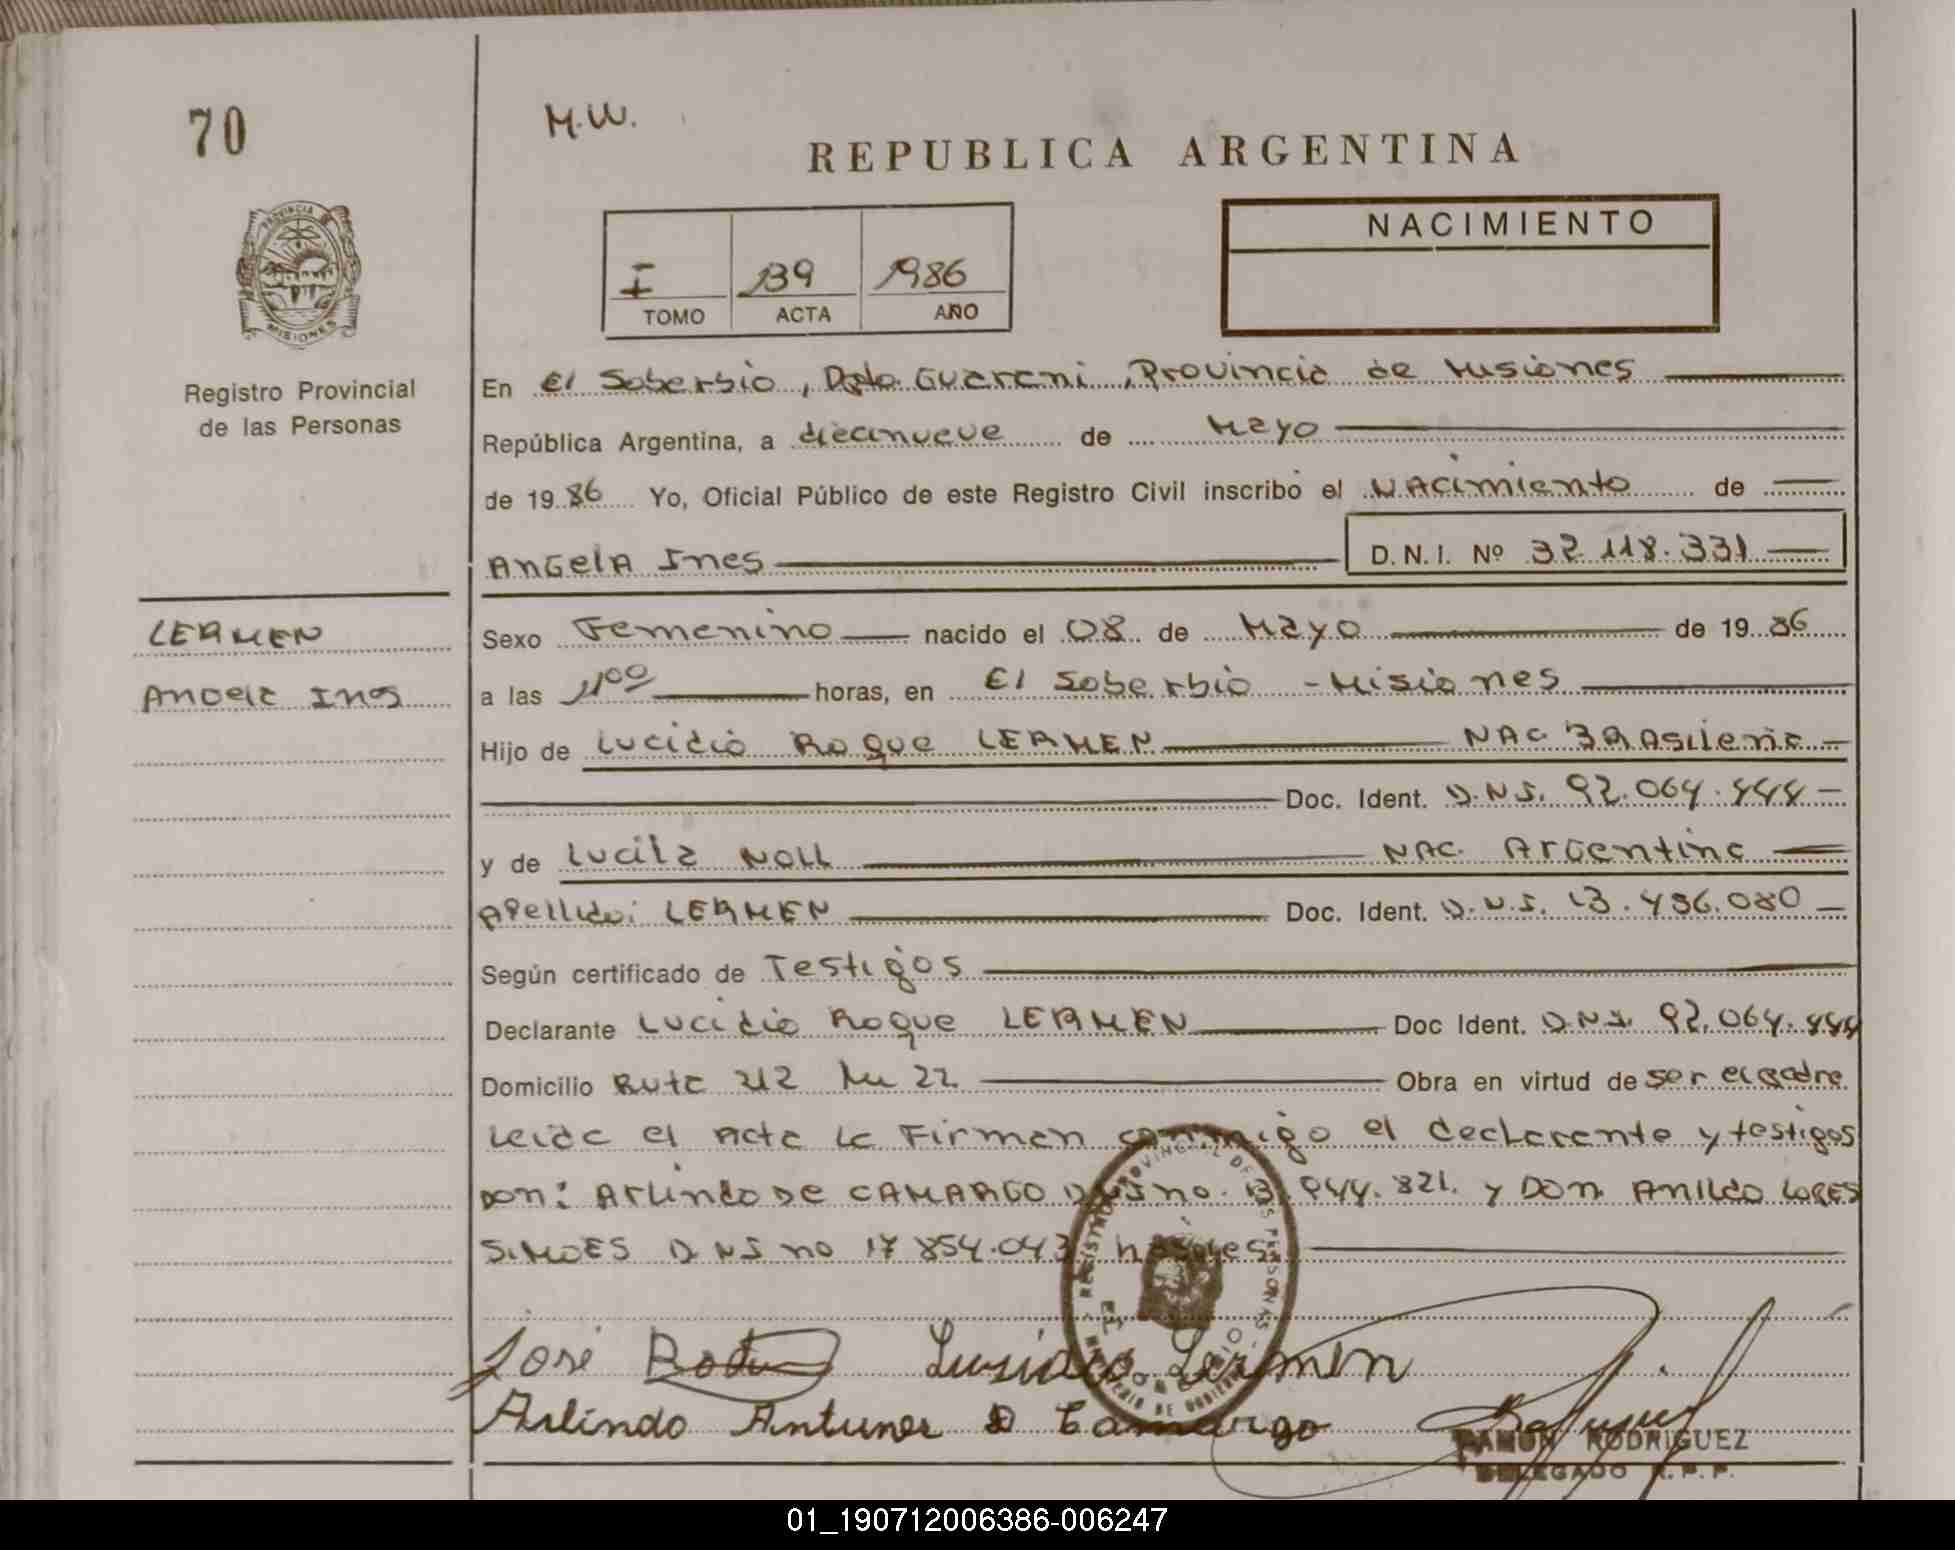 70
M.W.
REPUBLICA ARGENTINA
NACIMIENTO
I 139 1986
TOMO ACTA AÑO
PROVINCIA
MISIONES
Registro Provincial
de las Personas
En El Soberbio, Dpto. Guarani, Provincia de Misiones
República Argentina, a diecinueve de Mayo
de 1986 Yo, Oficial Público de este Registro Civil inscribo el NAcimiento de
ANGelA Ines D.N.I. Nº 32.118.331
LERMEN
Angela Ines
Sexo Femenino nacido el 08 de Mayo de 1986
a las 11⁰⁰ horas, en El Soberbio - Misiones
Hijo de Lucidio Roque LERMEN NAC BRAsileña
Doc. Ident. D.N.I. 92.064.444
y de Lucila NOLL NAC. Argentina
Apellido: LERMEN Doc. Ident. D.N.I. 13.436.080
Según certificado de Testigos
Declarante Lucidio Roque LERMEN Doc Ident. D.N.I. 92.064.444
Domicilio Ruta 212 Km 22 Obra en virtud de ser el padre
Leida el Acta La Firman conmigo el declarante y testigos
Don: Arlindo De CAMARGO DNI no. 13.944.821. y DON Anildo LOPES
SIMOES D NI no 17 854.043 hábiles
REGISTRO PROVINCIAL DE LAS PERSONAS
José Lusidio Lermen
Arlindo Antunes D Camargo
RAMON RODRIGUEZ
DELEGADO R.P.P.
01_190712006386-006247